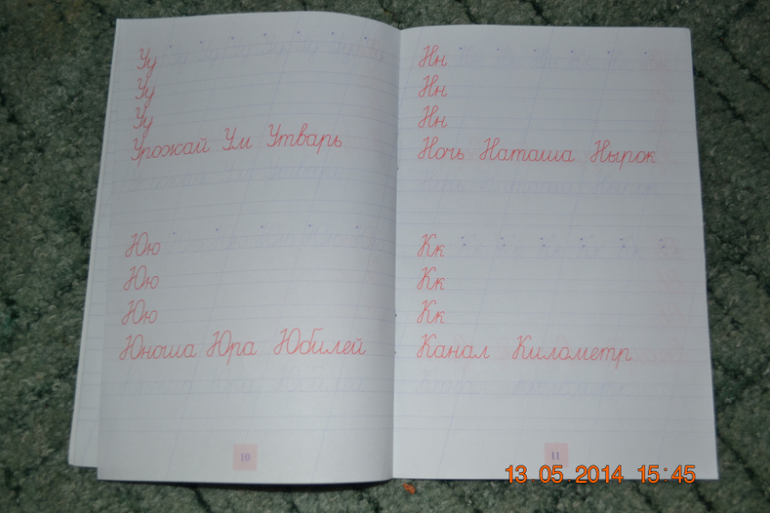 Уу
Уу
Уу
Урожай Ум Утварь
Юю
Юю
Юю
Юноша Юра Юбилей
10
Нн
Нн
Нн
Ночь Наташа Нырок
Кк
Кк
Кк
Канал Километр
11
13 05 2014 15:45